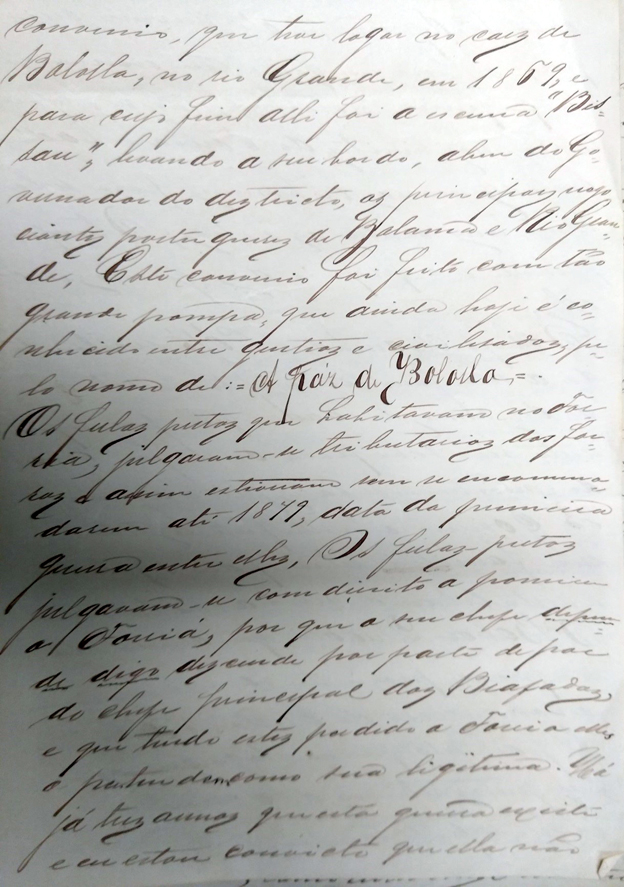 convenio, que teve logar no caez de
Bololla, no rio Grande, em 1869, e
para cujo fim alli foi a escuna "Bis-
sau", levando a seu bordo, alem do Go-
vernador do deztricto, oz principaez nego-
ciantez portuguezez de Bolama e Rio Gran-
de, Este convenio foi feito com tão
grande pompa, que ainda hoje é co-
nhecido entre gentioz e civilisadoz, pe-
lo nome de := A páz de Bololla =.
Os fulaz pretoz que habitavam no For-
reá, julgavam-se tributarioz dos for-
roz e assim estiveram sem se encommo-
darem até 1879, data da primeira
guerra entre elles, Os fulaz-pretoz
julgavam-se com direito a possuirem
o Forriá, por que o seu chefe
de digo dezcende por parte de pae
do chefe principal doz Biafadaz,
e que tendo estez perdido o Forria elles
o pertendem como sua legitima. Há
já trez annoz que esta guerra existe
e eu estou convicto que ella não